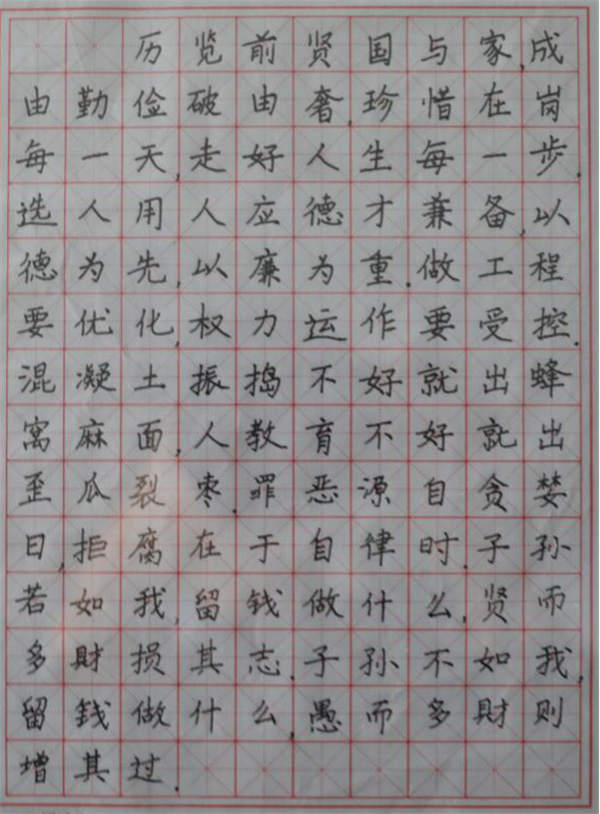 历览前贤国与家,成
由勤俭破由奢.珍惜在岗
每一天,走好人生每一步.
选人用人应德才兼备,以
德为先,以廉为重.做工程
要优化,权力运作要受控.
混凝土振捣不好就出蜂
窝麻面,人教育不好就出
歪瓜裂枣.罪恶源自贪婪
日,拒腐在于自律时.子孙
若如我,留钱做什么,贤而
多財损其志.子孙不如我,
留錢做什么,愚而多財则
增其过.